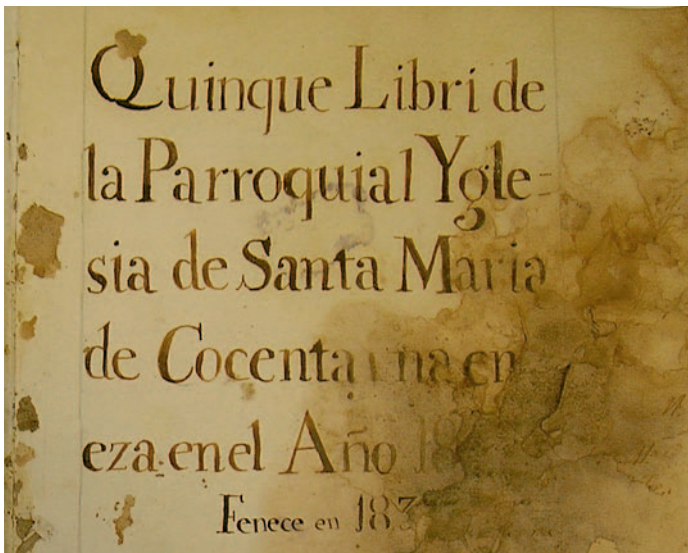 Quinque Libri de
la Parroquial Ygle=
sia de Santa Maria
de Cocentayna en
eza en el Año
Fenece en